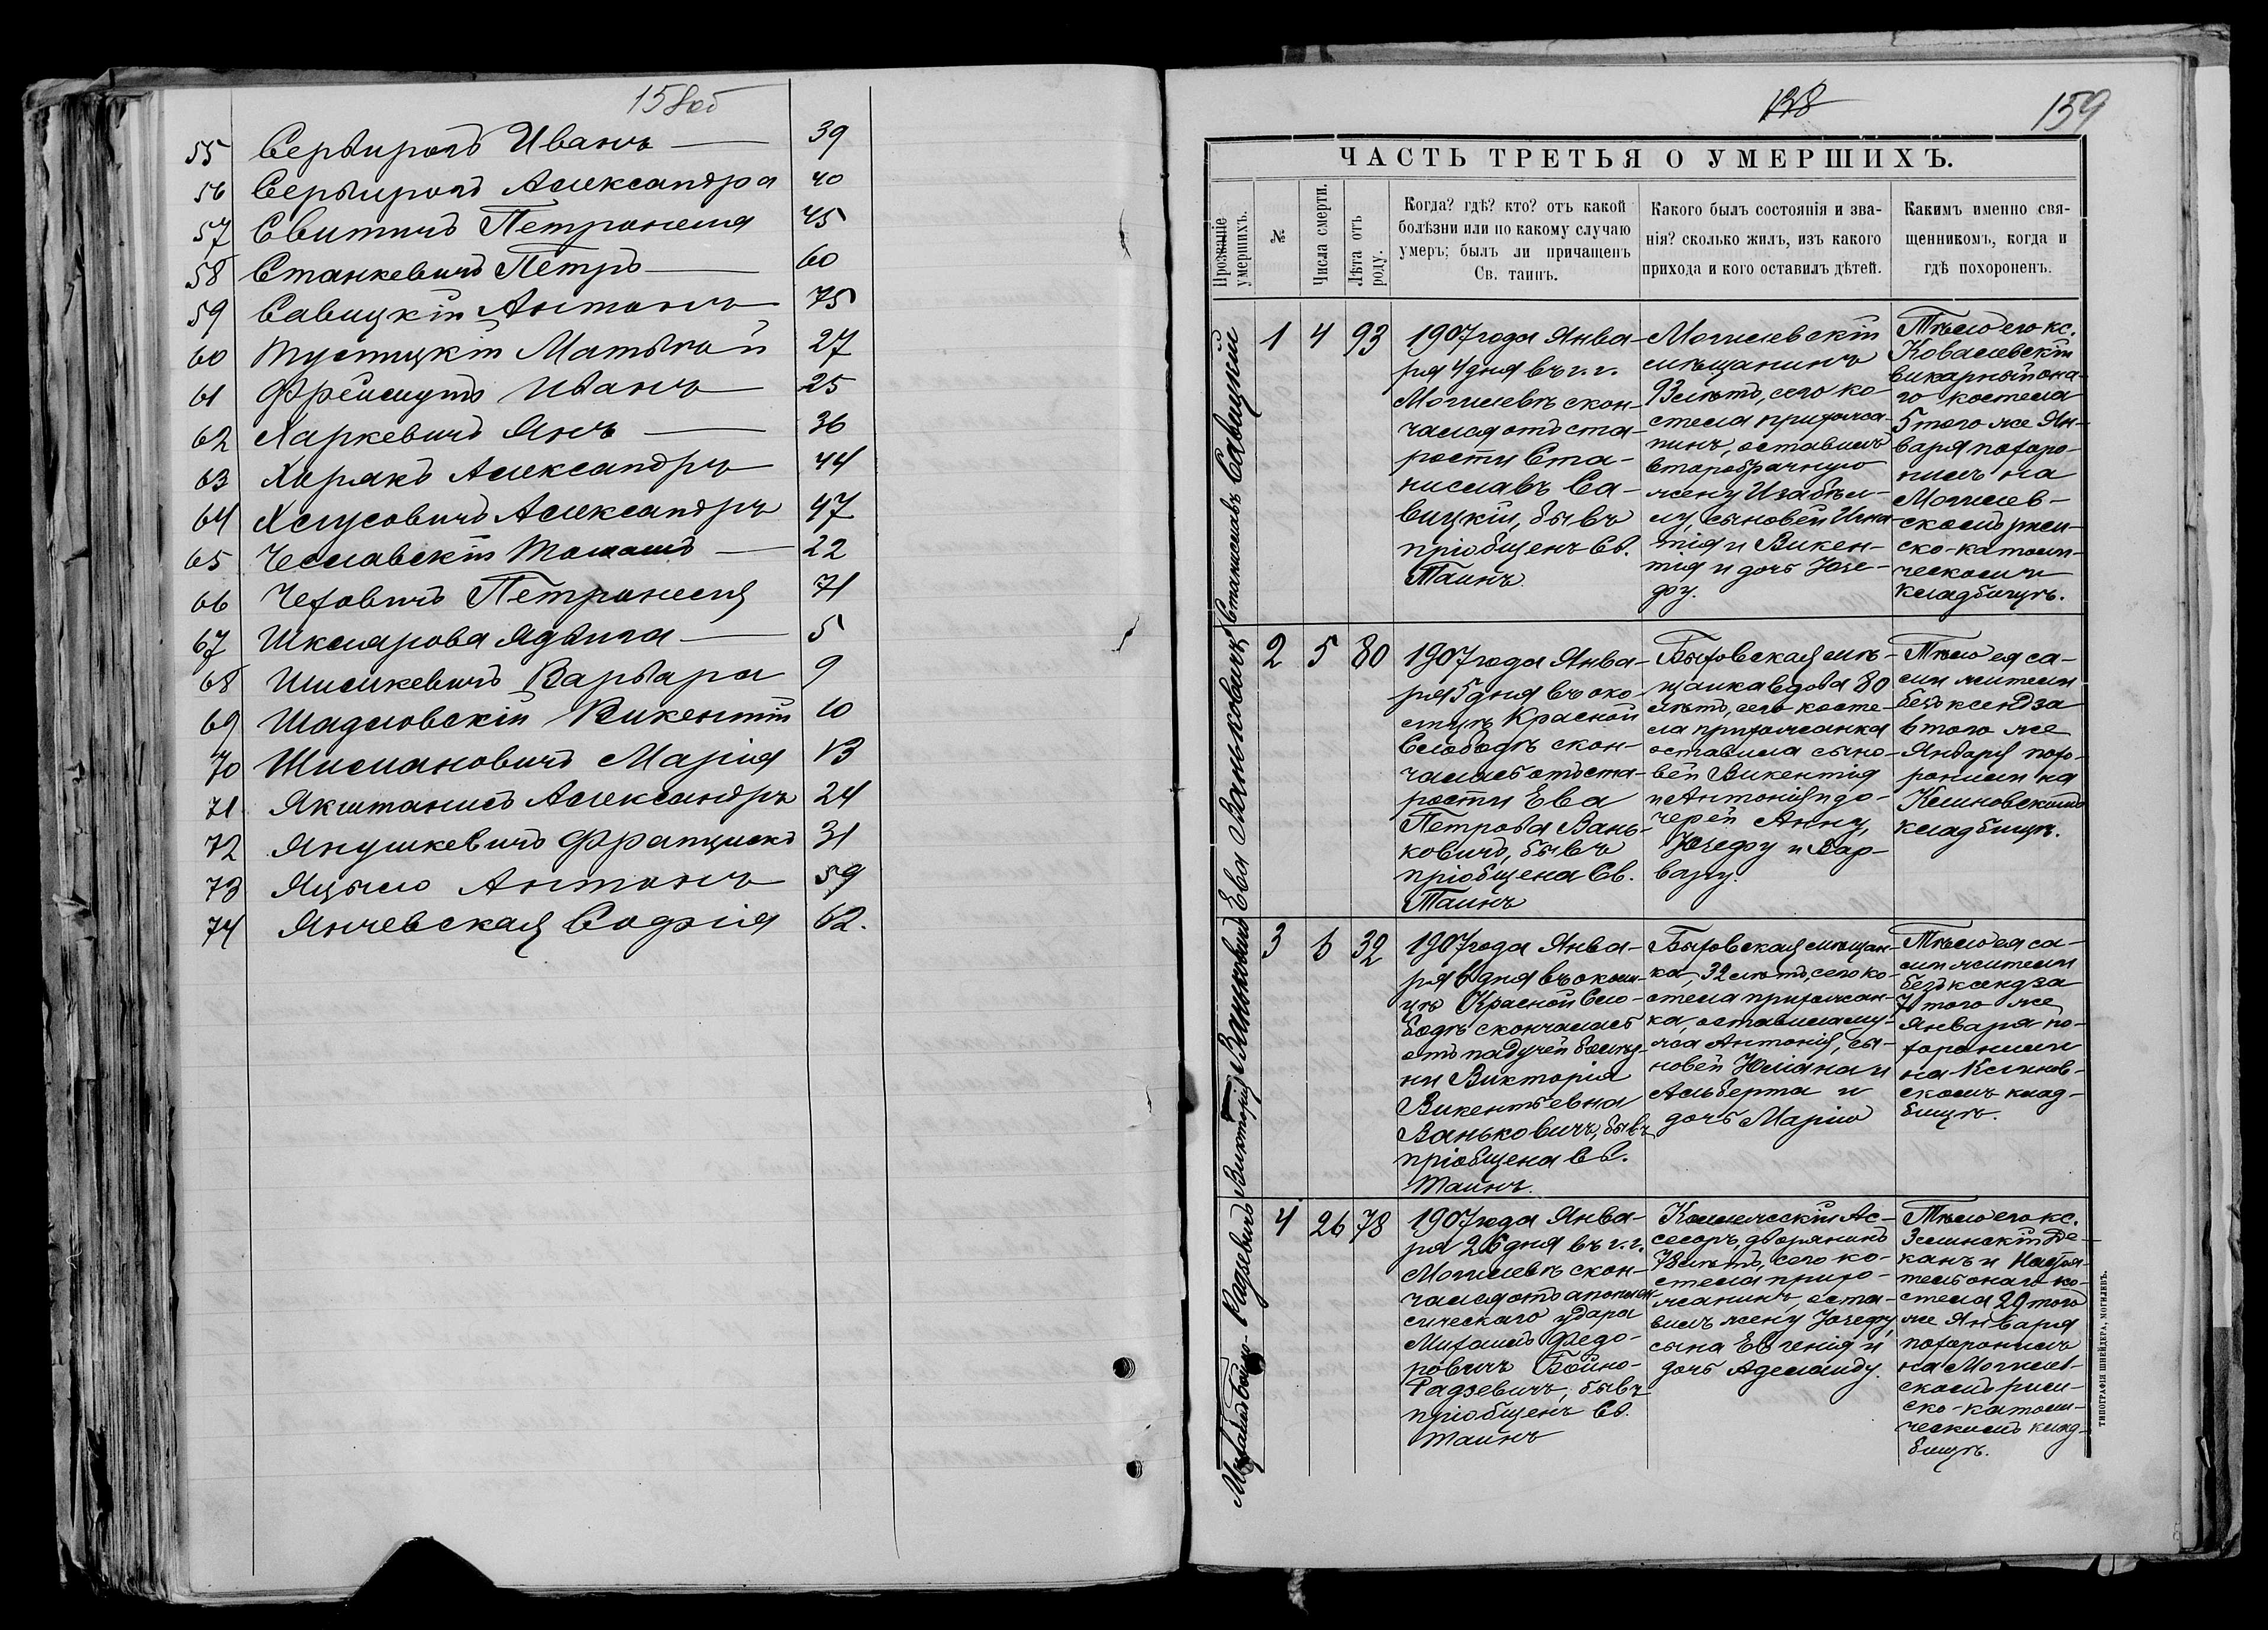 158об
55 Сербиродъ Иванъ — 39
56 Сербиродъ Александра 40
57 Свитичъ Петронеля 45
58 Станкевичъ Петръ — 60
59 Савицкій Антонъ 75
60 Матвѣй 27
61 Фреймутъ Иванъ 25
62 Янъ — 36
63 Александръ 44
64 Хлусовичъ Александръ 47
65 Чеславскій Томашъ — 22
66 Чеховичъ Петронеля 71
67 Шклярова Ядвига — 5
68 Шишкевичъ Варвара 9
69 Шадловскій Викентій 10
70 Шимановичъ Марія 13
71 Якштанисъ Александръ 24
72 Янушкевичъ Францискъ 31
73 Яцыно Антонъ 59
74 Янчевская Софія 62.
138
159
ЧАСТЬ ТРЕТЬЯ О УМЕРШИХЪ.
Прозваніе умершихъ.
№
Числа смерти.
Лѣта отъ роду.
Когда? гдѣ? кто? отъ какой
болѣзни или по какому случаю
умеръ; былъ ли причащенъ
Св. таинъ.
Какого былъ состоянія и зва-
нія? сколько жилъ, изъ какого
прихода и кого оставилъ дѣтей.
Какимъ именно свя-
щенникомъ, когда и
гдѣ похороненъ.
Станиславъ Савицкій
1 4 93
1907 года Янва-
ря 4 дня въ г. г.
Могилевѣ скон-
чался отъ ста-
рости Ста-
ниславъ Са-
вицкій, бывъ
пріобщенъ Св.
Таинъ.
Могилевскій
мѣщанинъ
93 лѣтъ, сего ко-
стела прихожа-
нинъ, оставилъ
второбрачную
жену Изабел-
лу, сыновей Игна-
тія и Викен-
тія и дочь Юзе-
фу.
Тѣло его кс.
Ковалевскій
викарный она-
го костела
5 того же Ян-
варя похоро-
нилъ на
Могилев-
скомъ рим-
ско-катол-
ческомъ
кладбищѣ.
Ева Ваньковичъ
2 5 80
1907 года Янва-
ря 5 дня въ око-
лицѣ Красной
Слободѣ скон-
чалась отъ ста-
рости Ева
Петрова Вань-
ковичъ, бывъ
пріобщена Св.
Таинъ
Быховская мѣ-
щанка вдова 80
лѣтъ, сего косте-
ла прихожанка
оставила сыно-
вей Викентія
и Антонія и до-
черей Анну,
Юзефу и Вар-
вару.
Тѣло ея са-
ми жители
безъ ксендза
6 того же
Января похо-
ронили на
Клиновскомъ
кладбищѣ.
Викторія Ваньковичъ
3 6 32
1907 года Янва-
ря 6 дня въ околи-
цѣ Красной Сло-
бодѣ скончалась
отъ падучей болѣз-
ни Викторія
Викентьевна
Ваньковичъ, бывъ
пріобщена Св.
Таинъ.
Быховская мѣщан-
ка, 32 лѣтъ, сего ко-
стела прихожан-
ка, оставила му-
жа Антонія, сы-
новей Юліана и
Альберта и
дочь Марію
Тѣло ея са-
ми жители
безъ ксендза
7 того же
Января по-
хоронили
на Клинов-
скомъ клад-
бищѣ.
Михаилъ Бойно-Радзевичъ
4 26 78
1907 года Янва-
ря 26 дня въ г. г.
Могилевѣ скон-
чался отъ апоплек-
сическаго удара
Михаилъ Федо-
ровичъ Бойно-
Радзевичъ, бывъ
пріобщенъ Св.
Таинъ
Коллежскій Ас-
сесоръ, дворянинъ
78 лѣтъ, сего ко-
стела прихо-
жанинъ, оста-
вилъ жену Юзефу,
сына Евгенія и
дочь Аделаиду.
Тѣло его кс.
Зелинскій Де-
канъ и Настоя-
тель онаго ко-
стела 29 того
же Января
похоронилъ
на Могилев-
скомъ рим-
ско-католи-
ческомъ клад-
бищѣ.
ТИПОГРАФІЯ ШНЕЙДЕРА, МОГИЛЕВЪ.